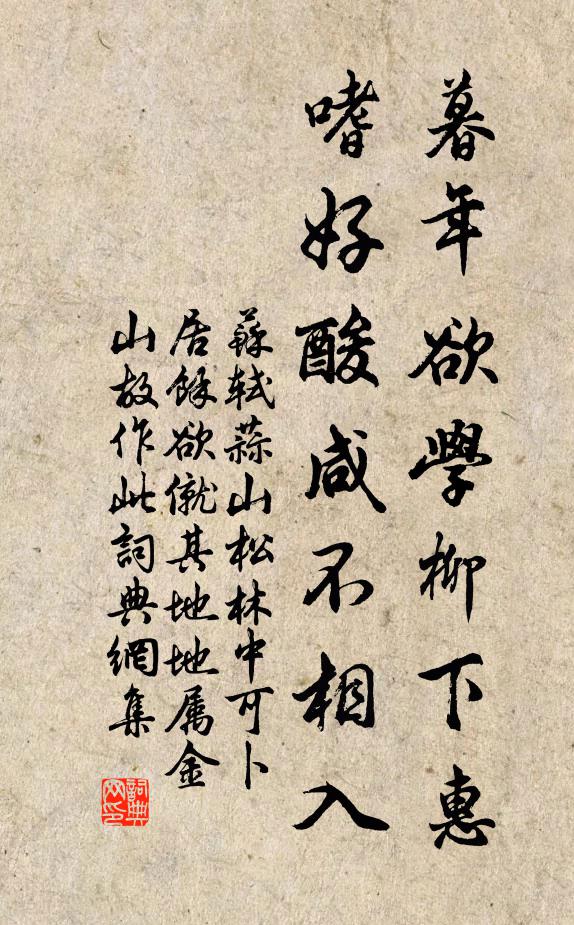 暮年欲學柳下惠
嗜好酸咸不相入
蘇軾蒜山松林中可卜
居餘欲僦其地地属金
山故作此詞典網集
詞典網印